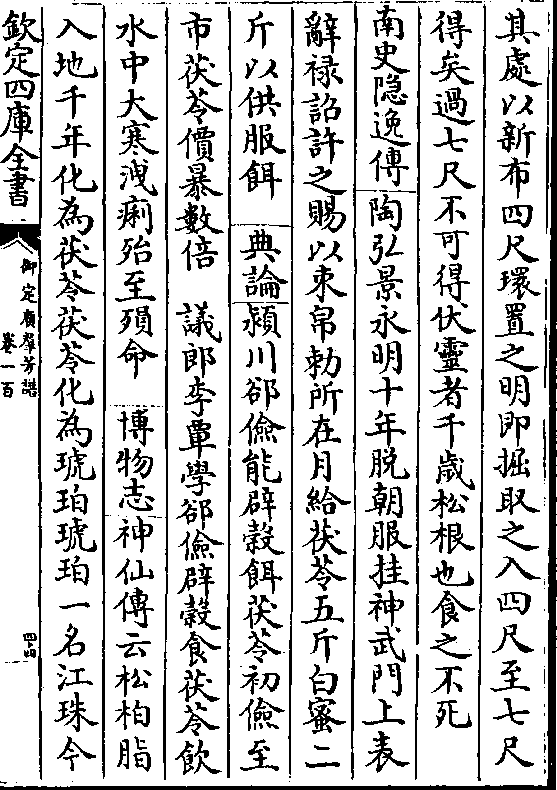 其處以新布四尺環置之明即掘取之入四尺至七尺
得矣過七尺不可得伏靈者千歳松根也食之不死
南史隐逸傳 陶弘景永明十年脱朝服挂神武門上表
辭禄詔許之賜以束帛勅所在月給茯苓五斤白蜜二
斤以供服餌 典論 潁川郤儉能辟榖餌茯苓初儉至
市茯苓價暴數倍 議郎李覃學郤儉辟榖食茯苓飲
水中大寒洩痢殆至殞命 博物志 神仙傳云松柏脂
入地千年化為茯苓茯苓化為琥珀琥珀一名江珠今
欽定四庫全書
御定廣羣芳譜
卷一百
四十四